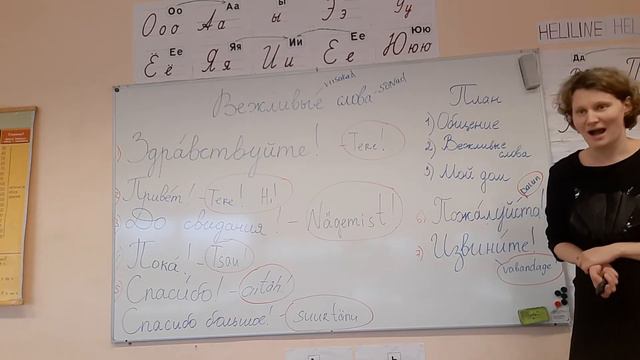 Оо Аа ы Ээ Уу
Ооо Аа ы Ээ Уу
Ее Яя Ии Ее Ююю
Ёё Яя Ии Ее Ююю
HELILINE HELI
Дд
viisakad sõnad
Вежливые слова
1) Здра́вствуйте! - Tere!
2) Приве́т! - Tere! Hi!
3) До свидания! - Nägemist!
4) Пока́! - Tsau!
5) Спаси́бо! - aitäh
Спасибо большое! - suur tänu
План
1) Общение
2) Вежливые
слова
3) Мой дом
palun
6) Пожа́луйста!
7) Извини́те!
vabandage